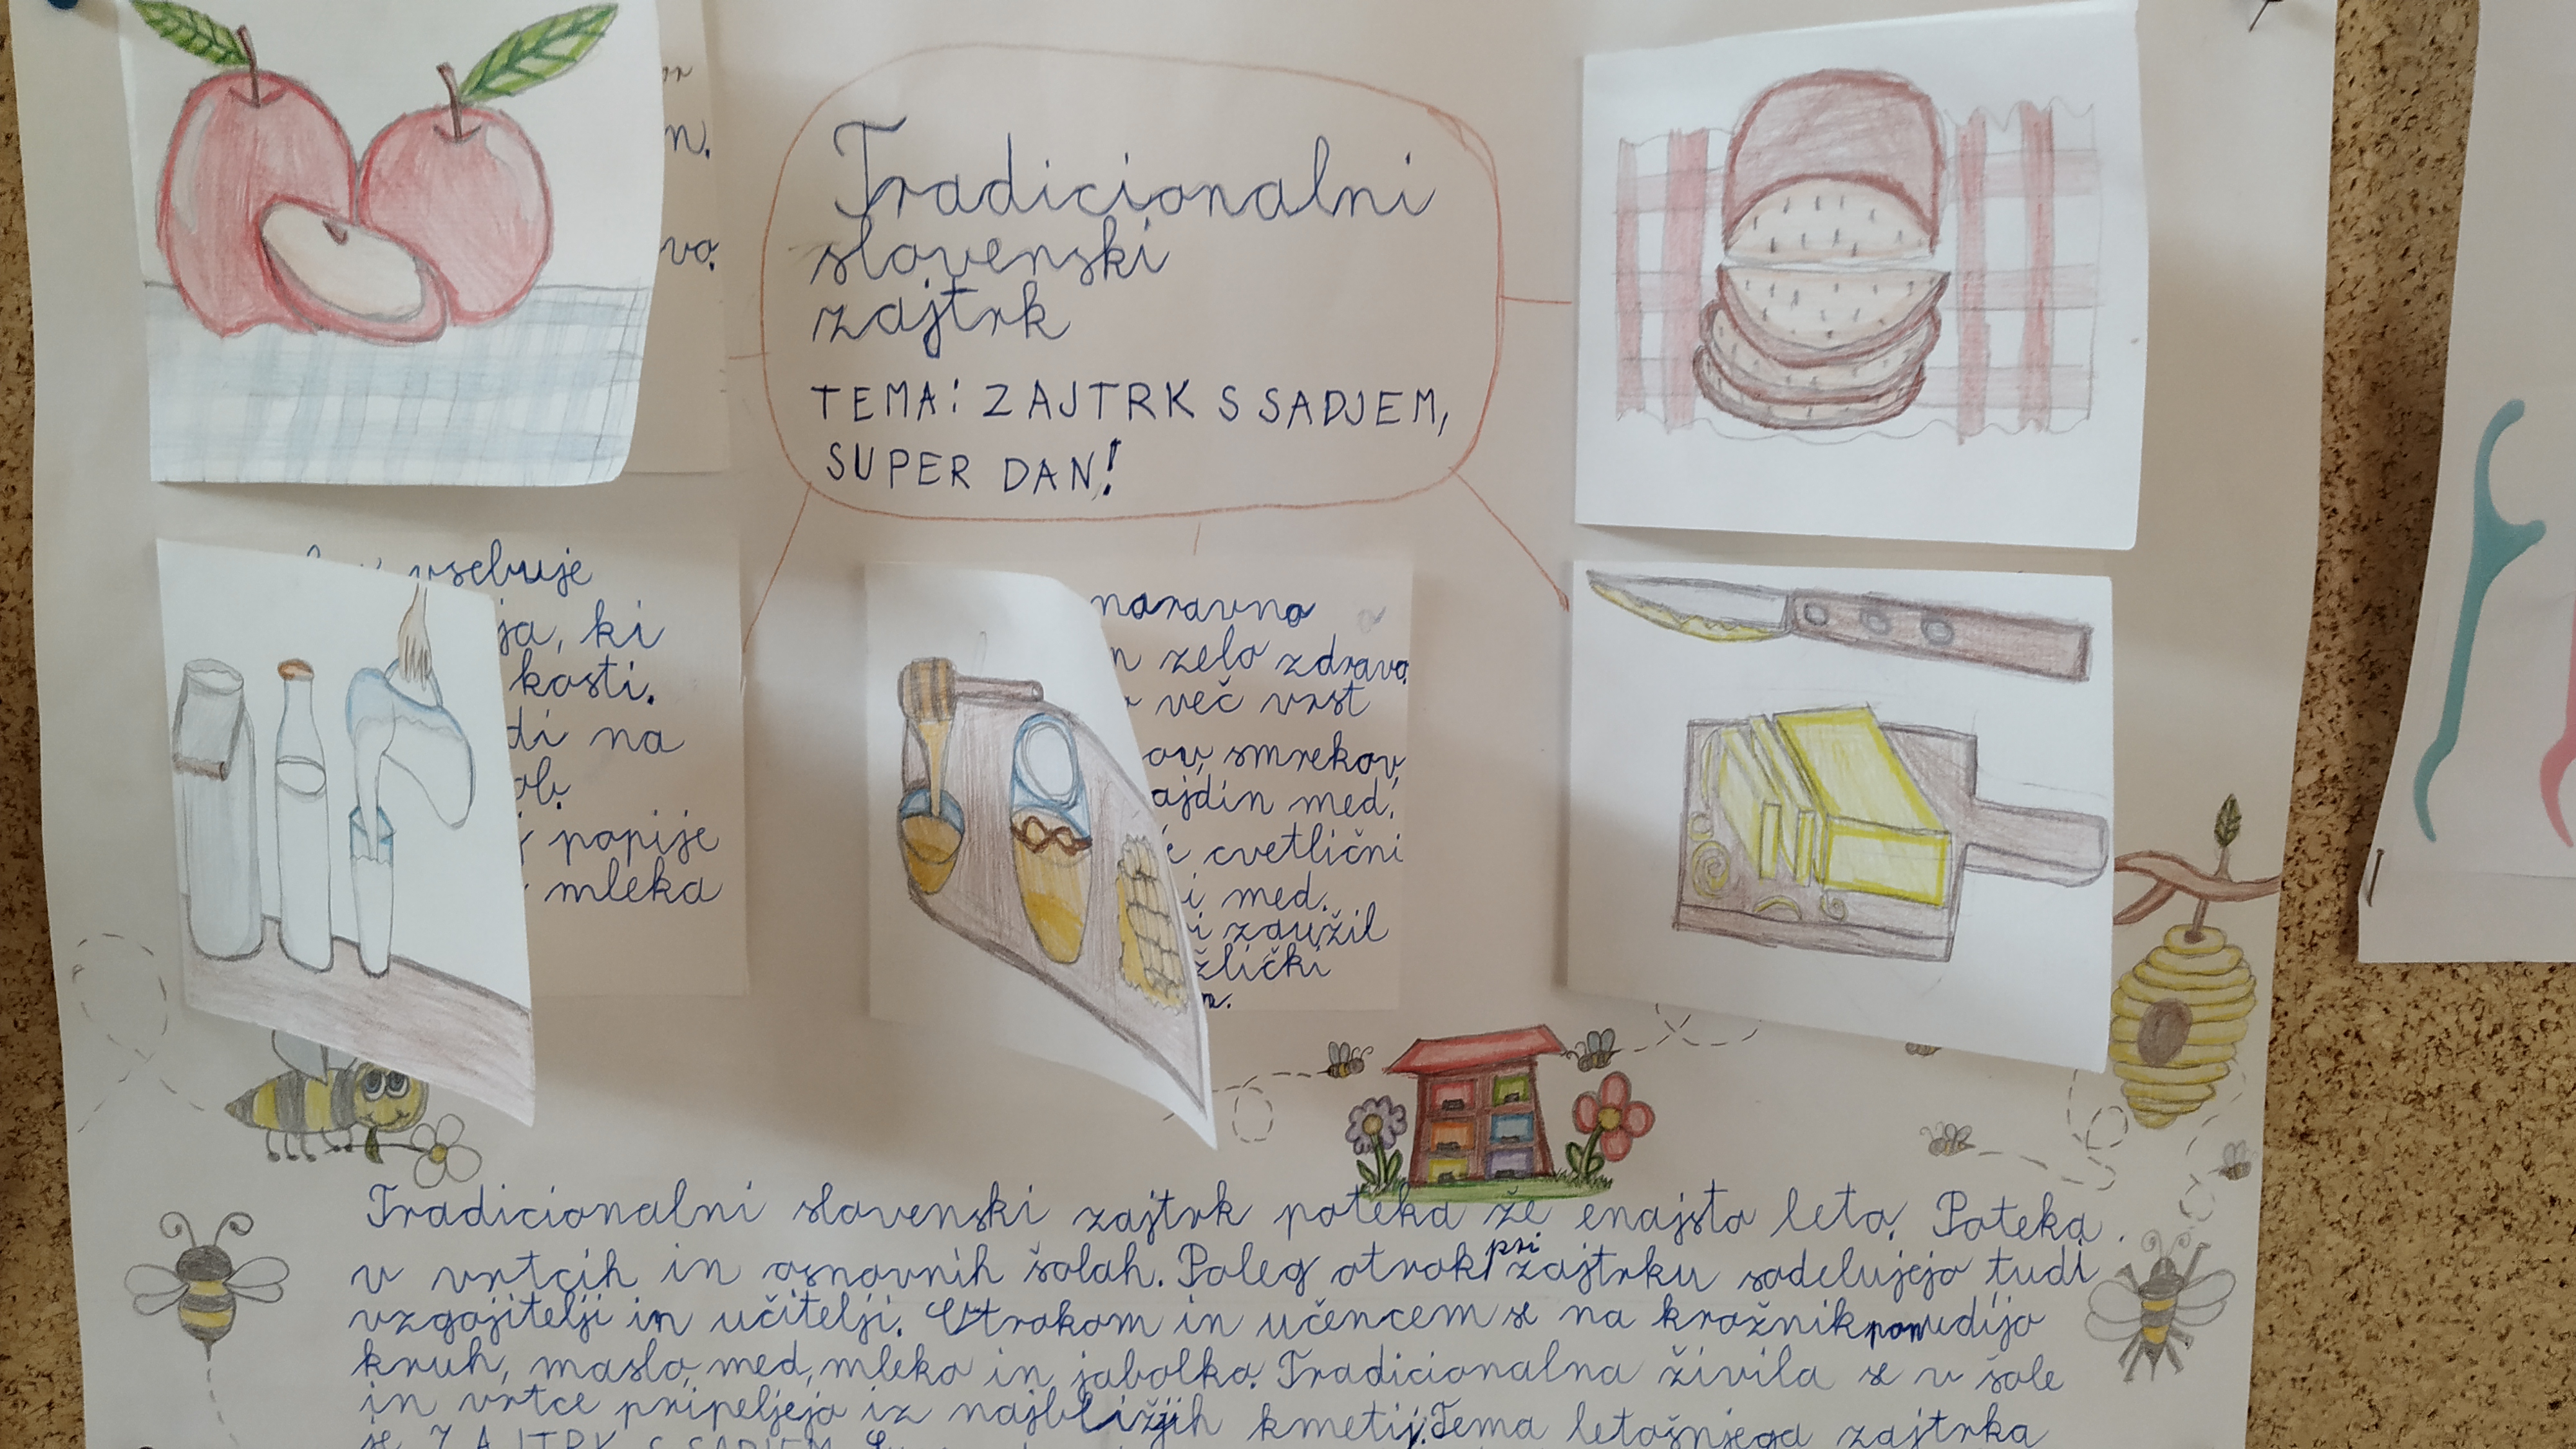 Tradicionalni
slovenski
zajtrk
TEMA: ZAJTRK S SADJEM,
SUPER DAN!
n.
vo.
vsebuje
ki
kosti.
na
popije
mleka
naravno
zelo zdravo.
več vrst
smrekov,
ajdin med,
cvetlični
med.
zaužil
žlički
Tradicionalni slovenski zajtrk poteka že enajsto leto. Poteka
v vrtcih in osnovnih šolah. Poleg otrok pri zajtrku sodelujejo tudi
vzgojitelji in učitelji. Otrokom in učencem se na krožnik ponudijo
kruh, maslo, med, mleko in jabolko. Tradicionalna živila se v šole
in vrtce pripeljejo iz najbližjih kmetij. Tema letošnjega zajtrka
je ZAJTRK S SADJEM,